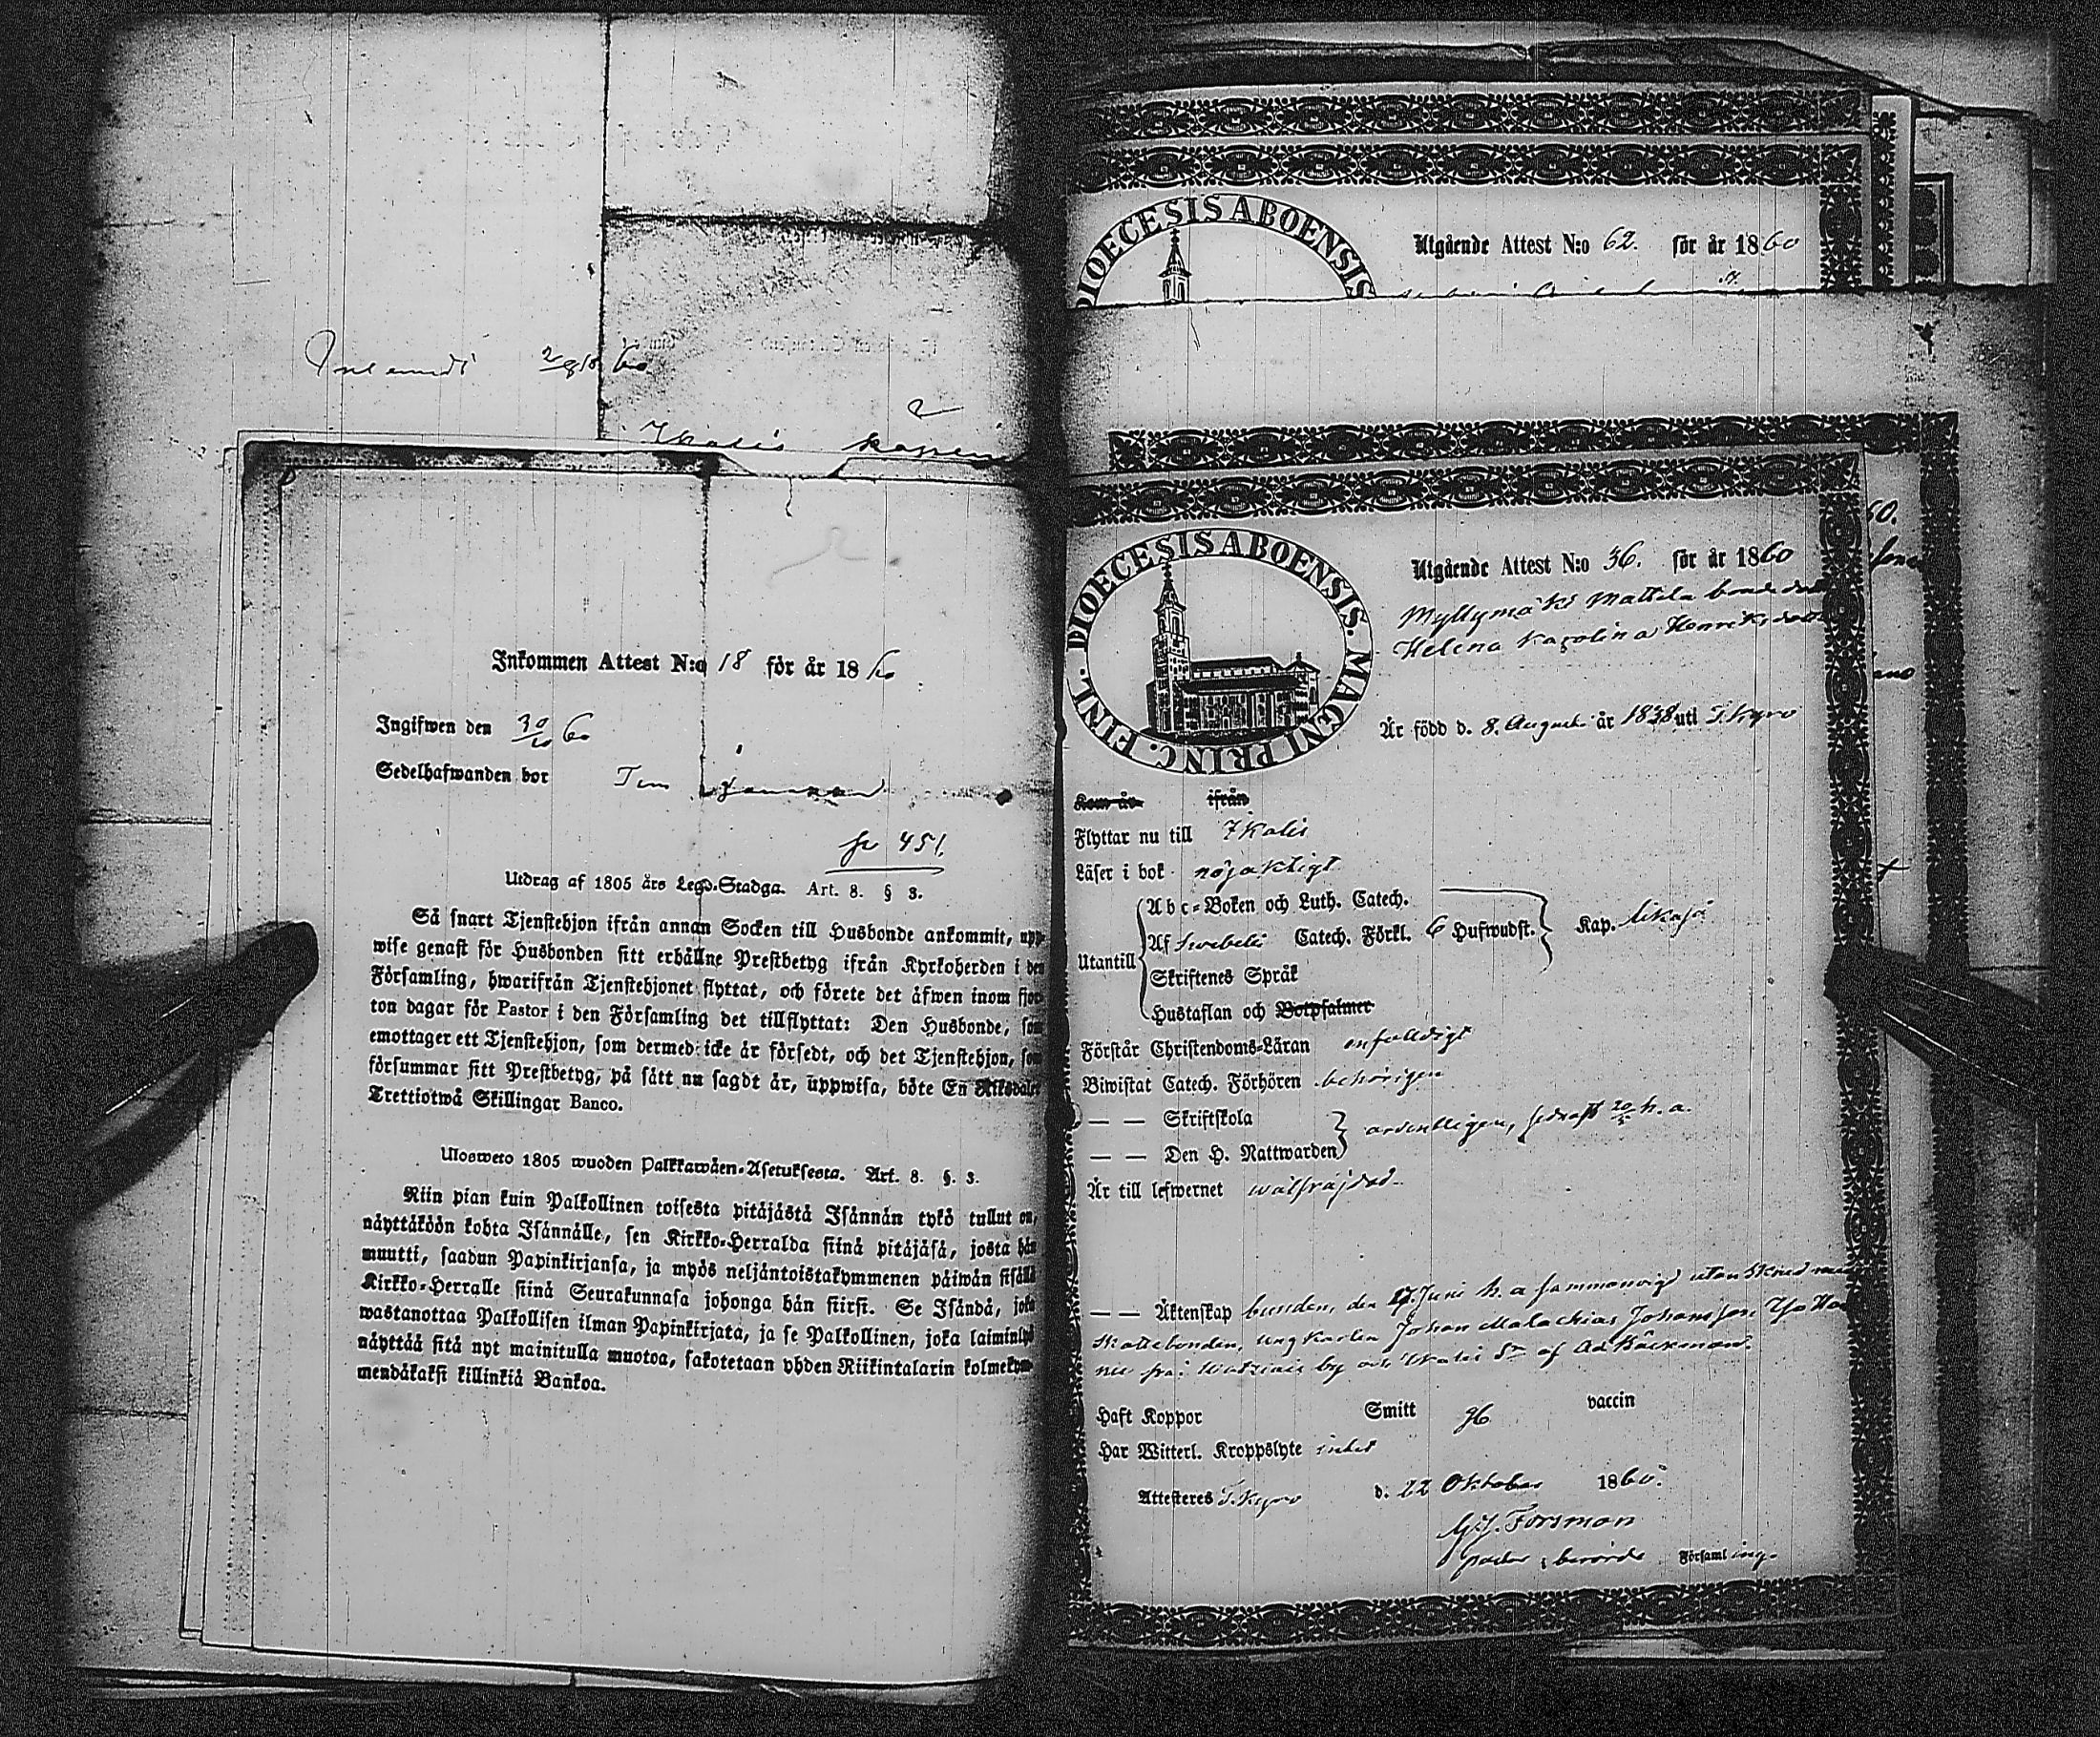 Ikalis
Inkommen Attest N:o 18 för år 1860
Ingifwen den 30/10 60
Sedelhafwanden bor
451
Utdrag af 1805 års Lego-Stadga. Art. 8. § 3.
Så snart Tjenstehjon ifrån annan Socken till Husbonde ankommit, upp-
wise genast för Husbonden sitt erhållne Prestbetyg ifrån Kyrkoherden i den
Församling, hwarifrån Tjenstehjonet flyttat, och förete det åfwen inom fjor-
ton dagar för Pastor i den Församling det tillflyttat: Den Husbonde, som
emottager ett Tjenstehjon, som dermed icke är försedt, och det Tjenstehjon, som
försummar sitt Prestbetyg, på sätt nu sagdt är, uppwisa, böte En Riksdaler
Trettiotwå Skillingar Banco.
Ulosweto 1805 wuoden Palkkawäen-Asetuksesta. Art. 8. §. 3.
Niin pian kuin Palkollinen toisesta pitäjästä Isännän tykö tullut on,
näyttäköön kohta Isännälle, sen Kirkko-Herralda siinä pitäjäsä, josta hän
muutti, saadun Papinkirjansa, ja myös neljäntoistakymmenen päiwän sisällä
Kirkko-Herralle siinä Seurakunnasa johonga hän siirsi. Se Isändä, joka
wastanottaa Palkollisen ilman Papinkirjata, ja se Palkollinen, joka laiminlyö
näyttää sitä nyt mainitulla muotoa, sakotetaan yhden Riikintalarin kolmekym-
mendäkaksi killinkiä Bankoa.
DIOECESIS ABOENSIS
Utgående Attest N:o 62. för år 1860
DIOECESIS ABOENSIS. MAGNI PRINC. FINL.
Utgående Attest N:o 36. för år 1860
Myllymäki Mattila bonde
Helena Karolina Henriksdotter
Är född d. 8. Augusti år 1838 uti T.kyro
Kom år ifrån
Flyttar nu till Ikalis
Läser i bok nöjaktigt
Utantill
Abc-Boken och Luth. Catech.
Af Swebelii Catech. Förkl. 6 Hufwudst. Kap. likaså
Skriftenes Språk
Hustaflan och Botpsalmer
Förstår Christendoms-Läran enfaldigt
Biwistat Catech. Förhören behörigen
— — Skriftskola
— — Den H. Nattwarden ordentligen, sednast 20/5 h. a.
Är till lefwernet wälfräjdad
— — Äktenskap bunden, den 17. Juni h. a sammanvigd utan
Skattebonden, ungkarlen Johan Malachias Johansson
by och Ikalis Sn af Ad Bäckman.
Haft Koppor Smitt vaccin
Har Witterl. Kroppslyte intet
Attesteres T.kyro d. 22 Oktober 1860.
Forsman
Församling.